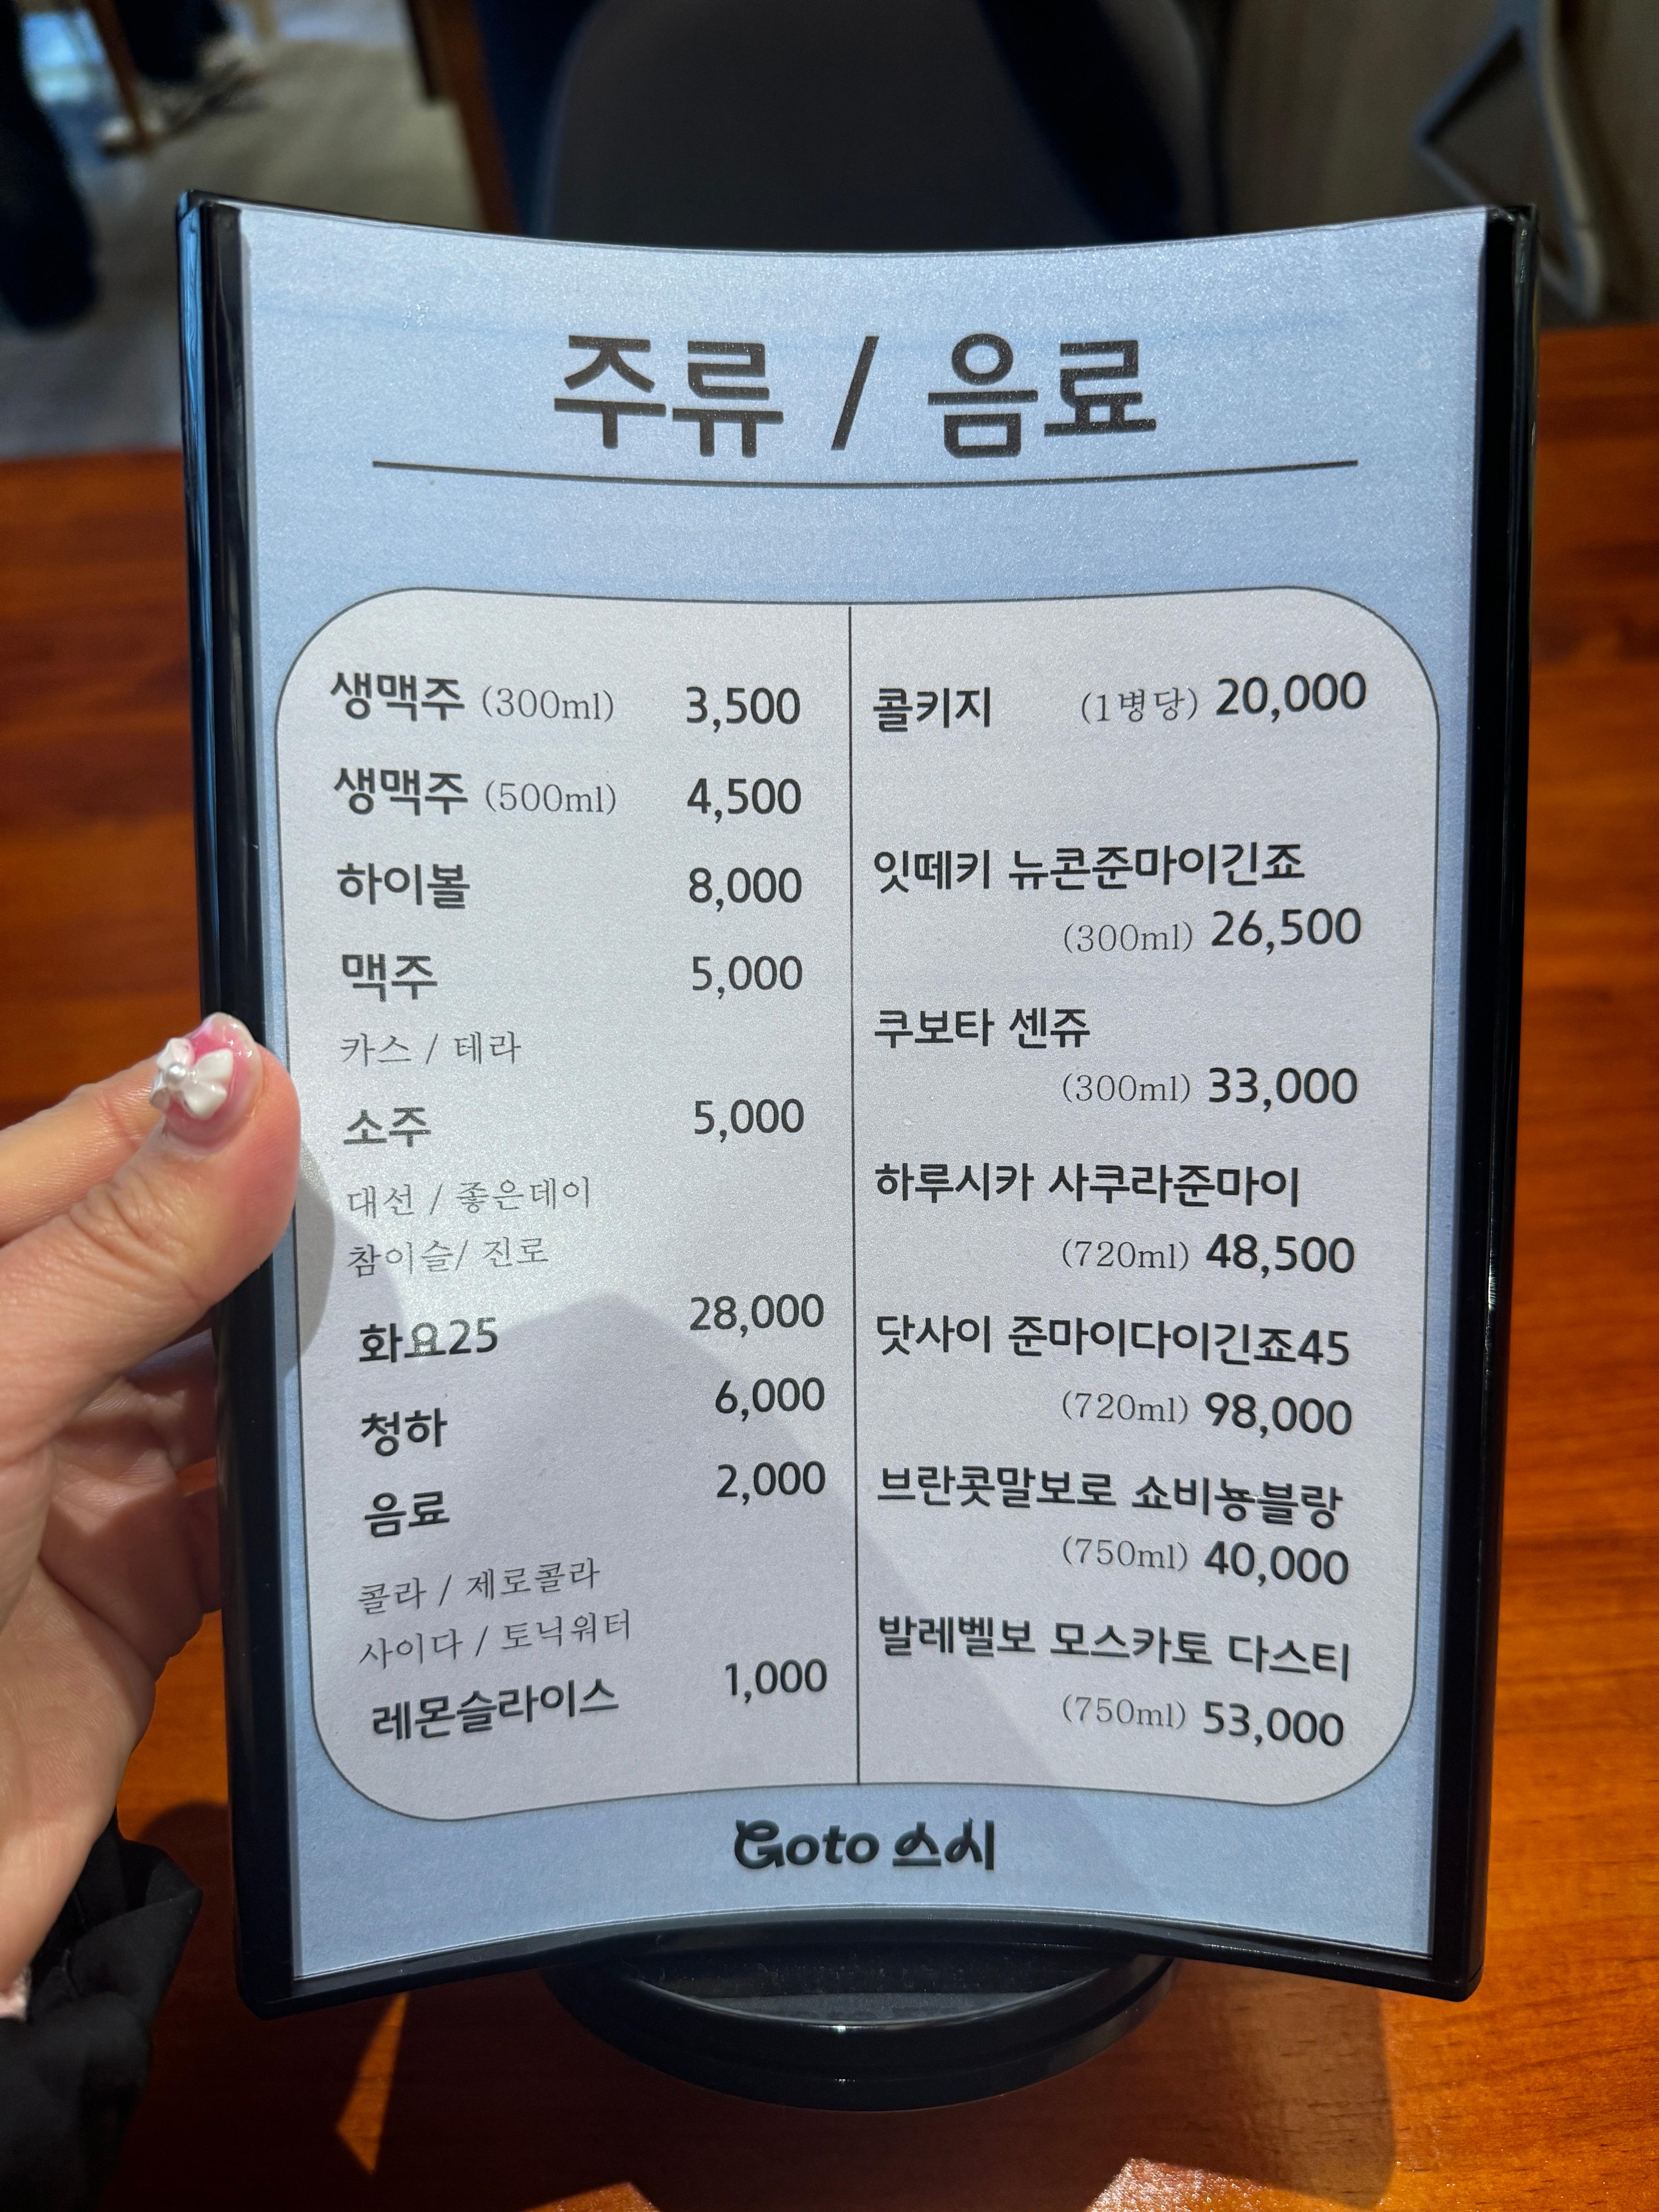 주류 / 음료
생맥주 (300ml) 3,500
생맥주 (500ml) 4,500
하이볼 8,000
맥주 5,000
카스 / 테라
소주 5,000
대선 / 좋은데이
참이슬/ 진로
화요25 28,000
청하 6,000
음료 2,000
콜라 / 제로콜라
사이다 / 토닉워터
레몬슬라이스 1,000
콜키지 (1병당) 20,000
잇떼키 뉴콘준마이긴죠
(300ml) 26,500
쿠보타 센쥬
(300ml) 33,000
하루시카 사쿠라준마이
(720ml) 48,500
닷사이 준마이다이긴죠45
(720ml) 98,000
브란콧말보로 쇼비뇽블랑
(750ml) 40,000
발레벨보 모스카토 다스티
(750ml) 53,000
Goto 스시